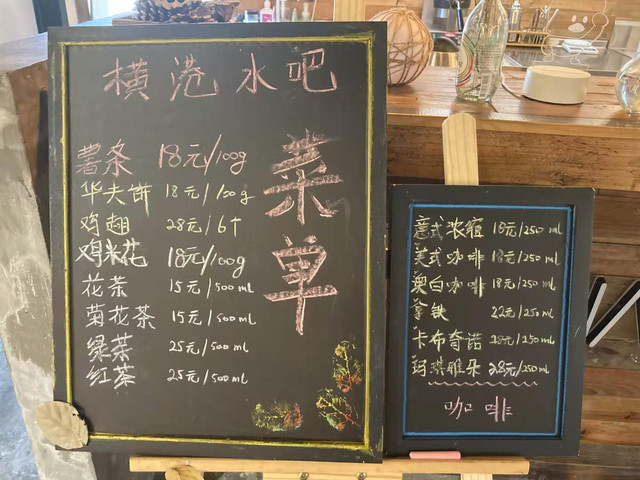 横港水吧
菜单
薯条 18元/100g
华夫饼 18元/100g
鸡翅 28元/6个
鸡米花 18元/100g
花茶 15元/500ml
菊花茶 15元/500ml
绿茶 25元/500ml
红茶 25元/500ml
意式浓缩 18元/250ml
美式咖啡 18元/250ml
澳白咖啡 18元/250ml
拿铁 22元/250ml
卡布奇诺 28元/250ml
玛琪雅朵 28元/250ml
咖啡